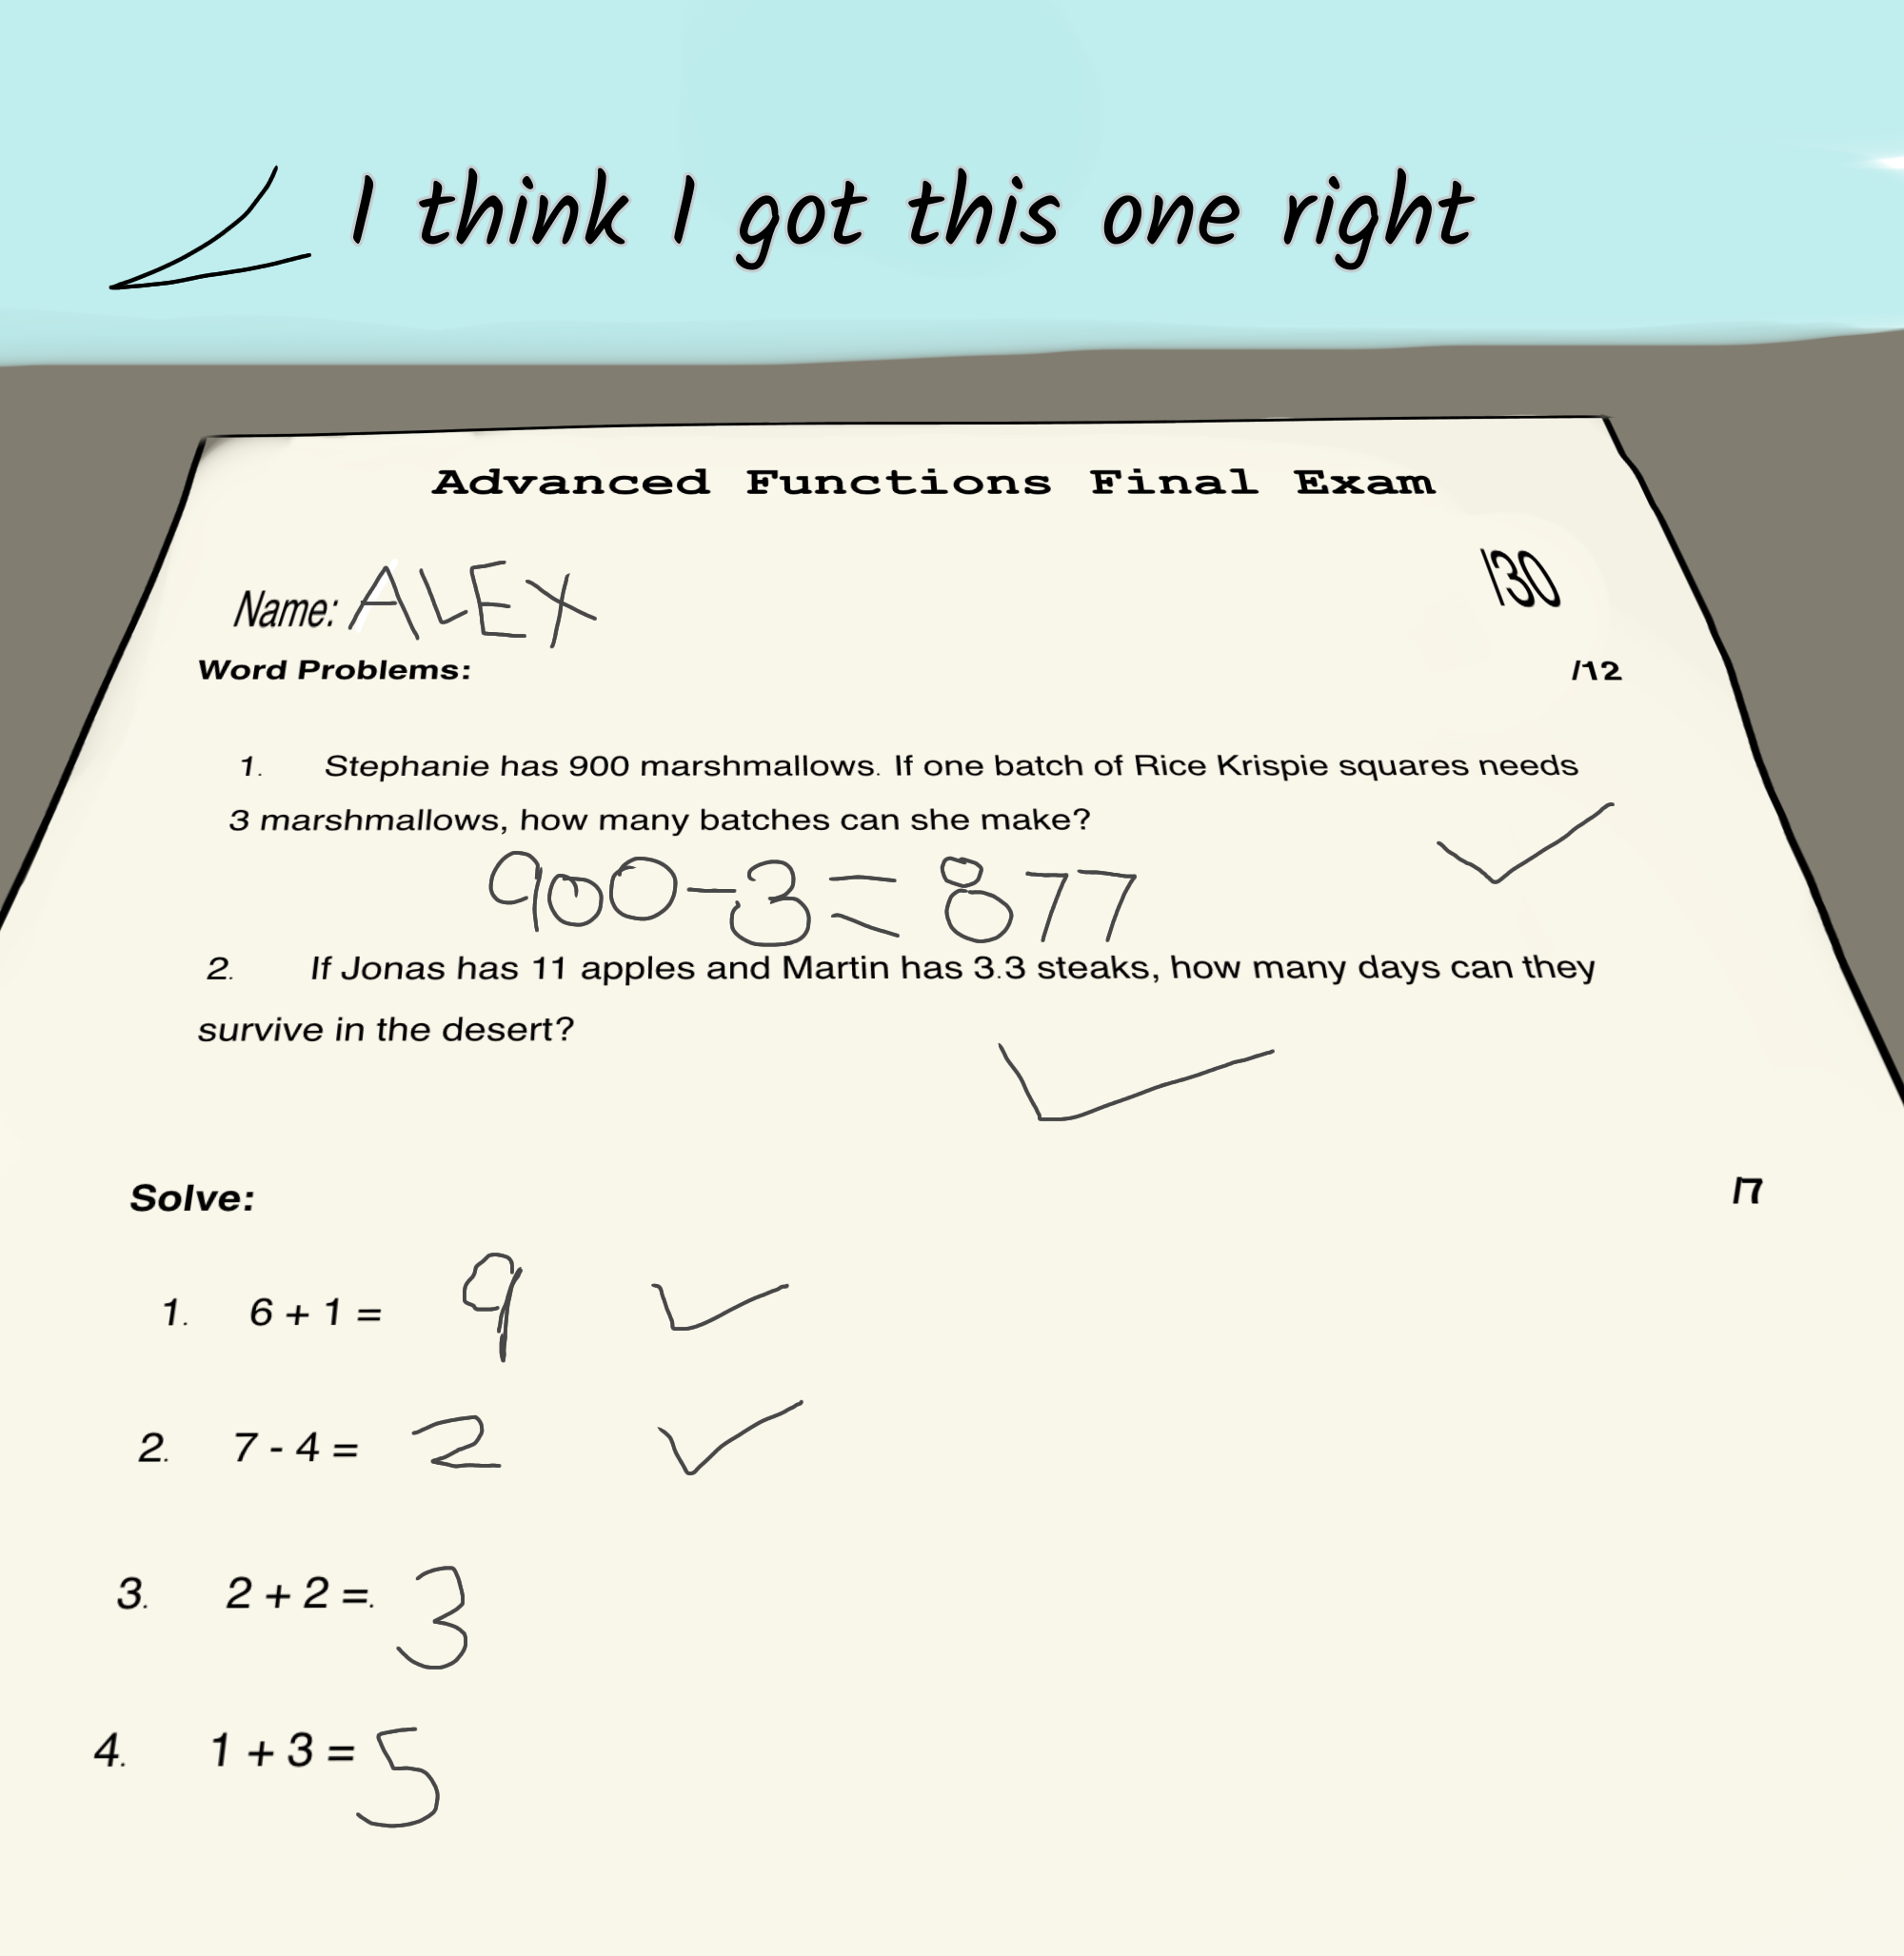 I think I got this one right
Advanced Functions Final Exam
Name: ALEX
/30
Word Problems: /12
1. Stephanie has 900 marshmallows. If one batch of Rice Krispie squares needs
3 marshmallows, how many batches can she make?
900-3=877
2. If Jonas has 11 apples and Martin has 3.3 steaks, how many days can they
survive in the desert?
Solve: /7
1. 6 + 1 = 9
2. 7 - 4 = 2
3. 2 + 2 =. 3
4. 1 + 3 = 5